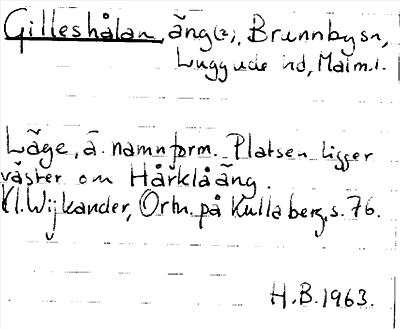 Gilleshålan, äng(2), Brunnbysn,
Luggude hd, Malm.l.
Läge, ä. namnform. Platsen ligger
väster om Hårklåäng.
Kl. Wijkander, Ortn. på Kullaberg, s. 76.
H.B. 1963.